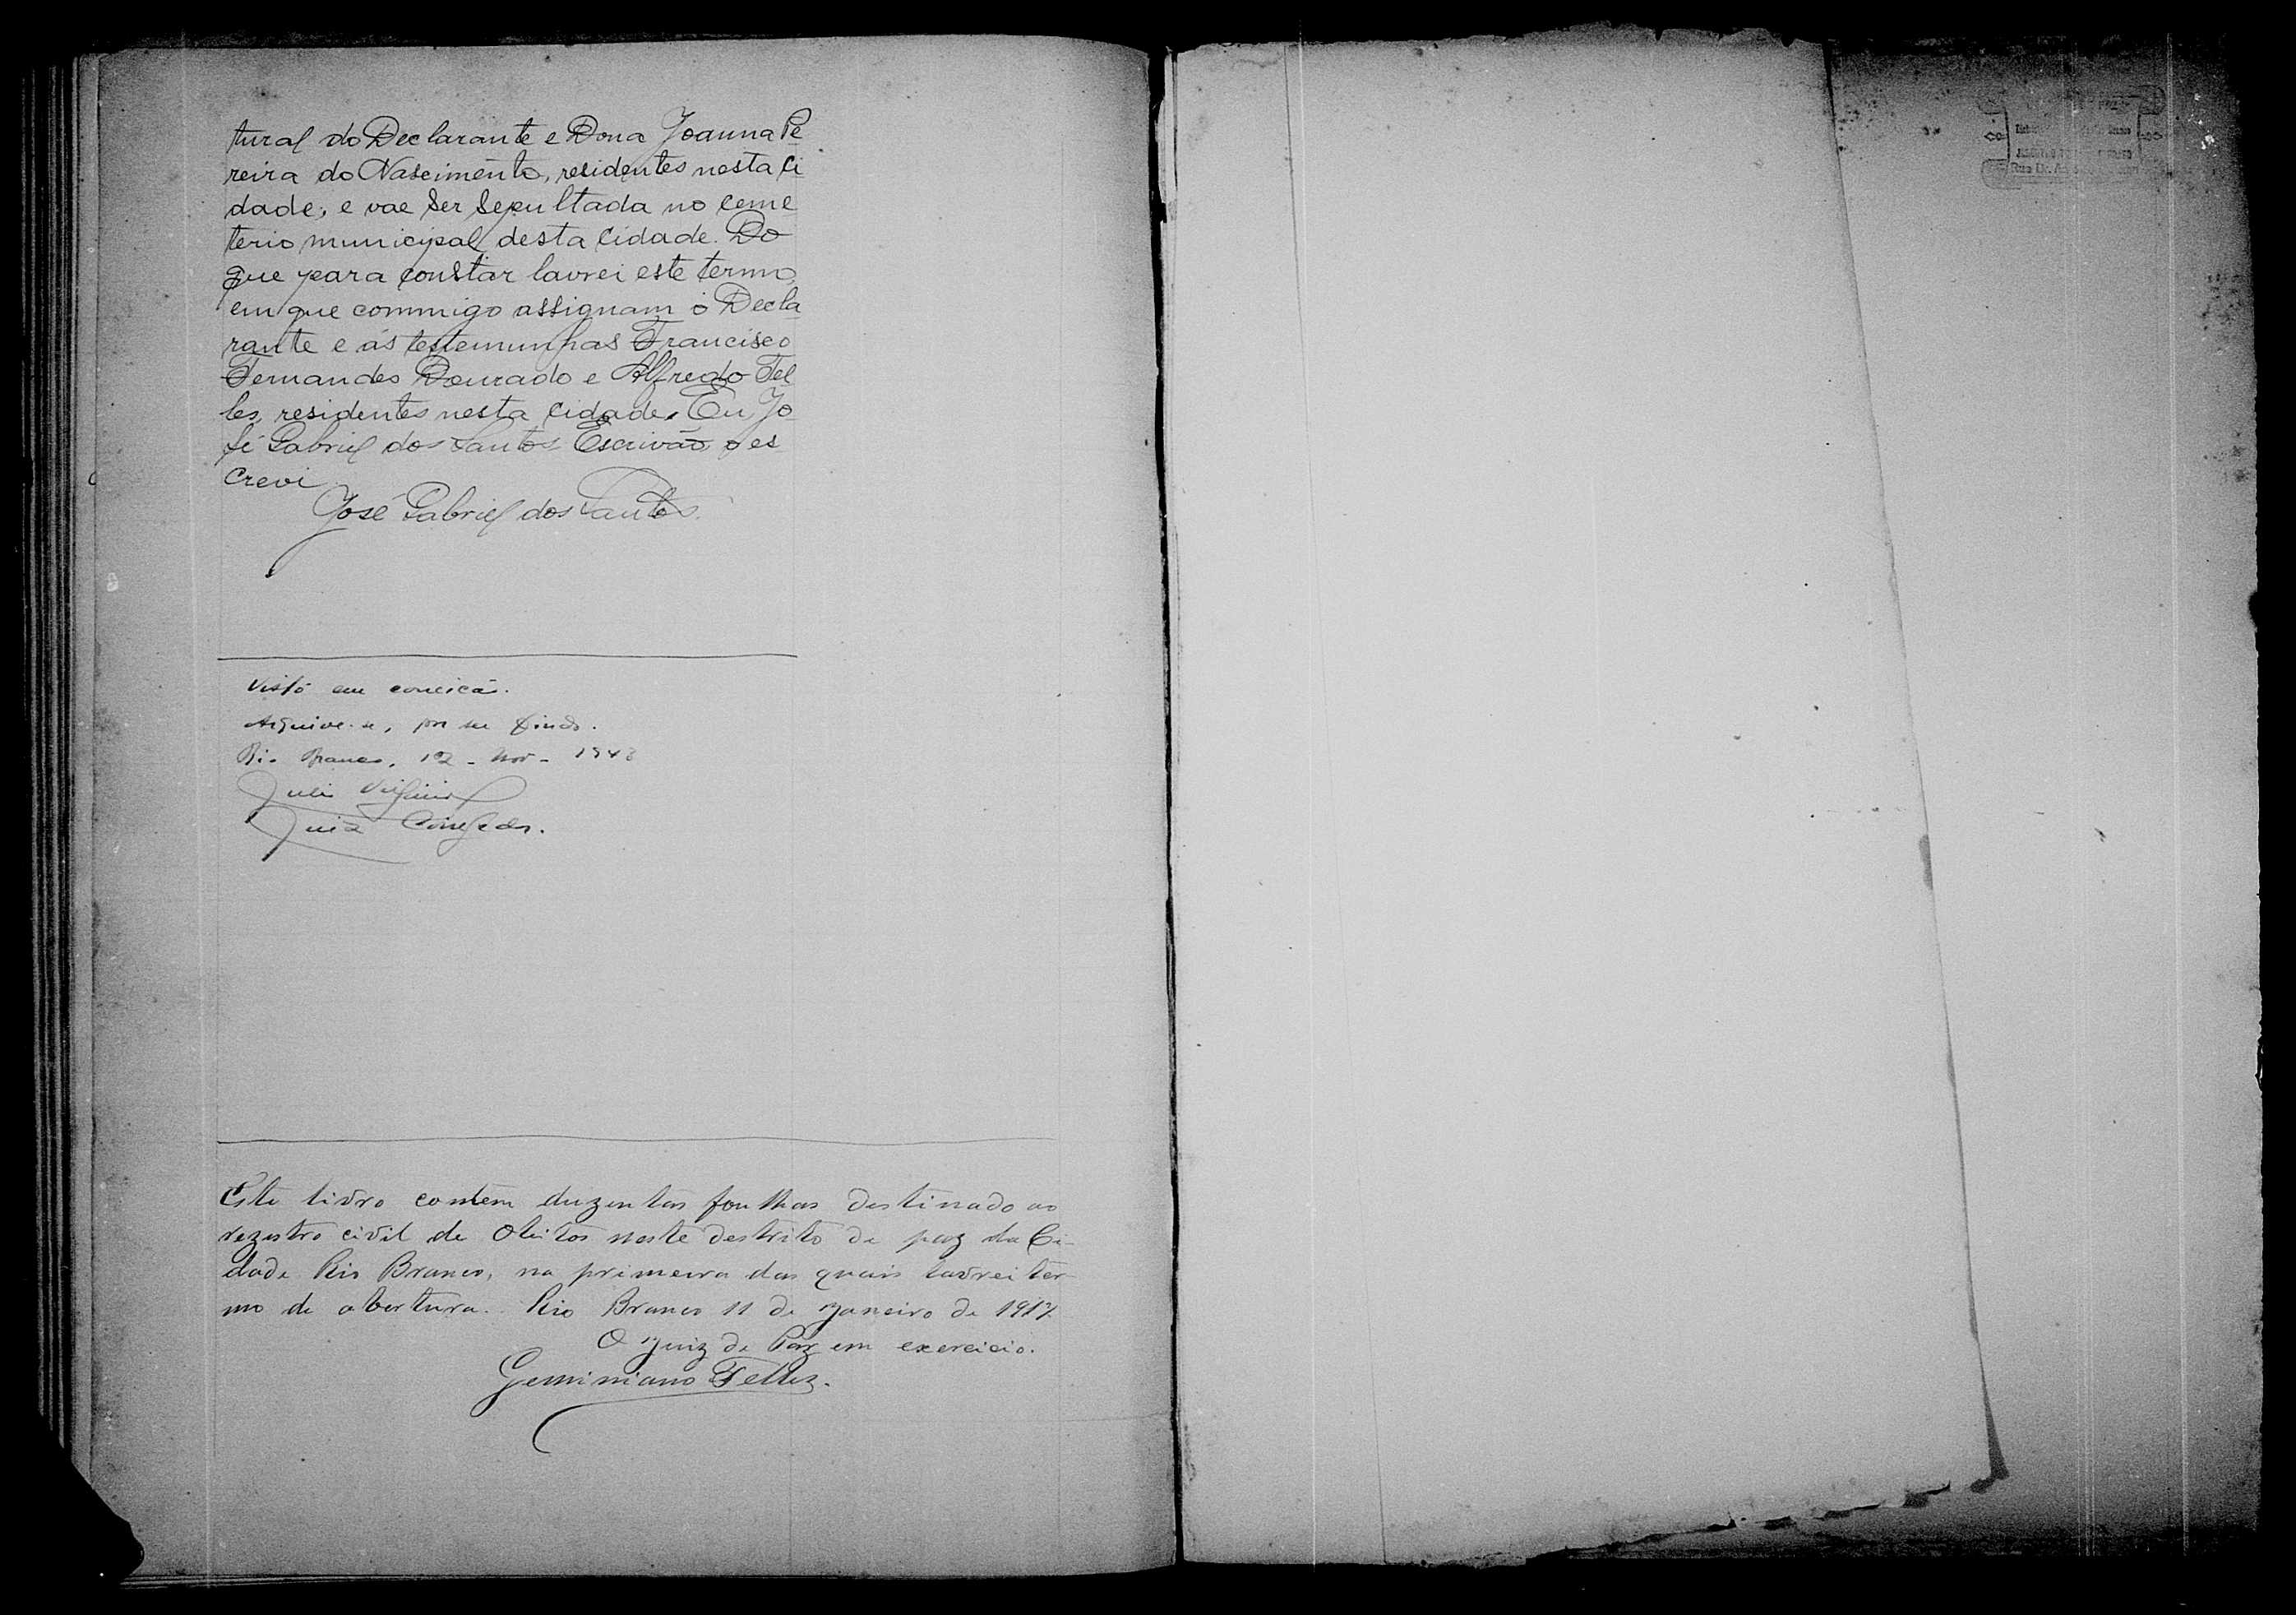 tural do Declarante e Dona Joanna Pe
reira do Nascimento, residentes nesta Ci
dade; e vae ser sepultada no ceme
terio municipal desta Cidade. Do
que para constar lavrei este termo,
em que commigo assignam o Decla
rante e as testemunhas Francisco
Fernandes Dourado e Alfredo Tel
les, residentes nesta Cidade. Eu, Jo
sé Gabriel dos Santos Escrivão o es
crevi
José Gabriel dos Santos.
Visto em correição.
Archive-se, por ser findo.
Rio Branco, 12 - Nov - 1943
Julio Virginio
Juiz
Este livro contem duzentas foulhas destinado ao
rezistro civil de Obitos neste destrito de paz da Ci-
dade Rio Branco, na primeira das quais lavrei ter-
mo de abertura. Rio Branco 11 de Janeiro de 1917
O Juiz de Paz em exercicio.
Geminiano Telles.
Rua Dr.